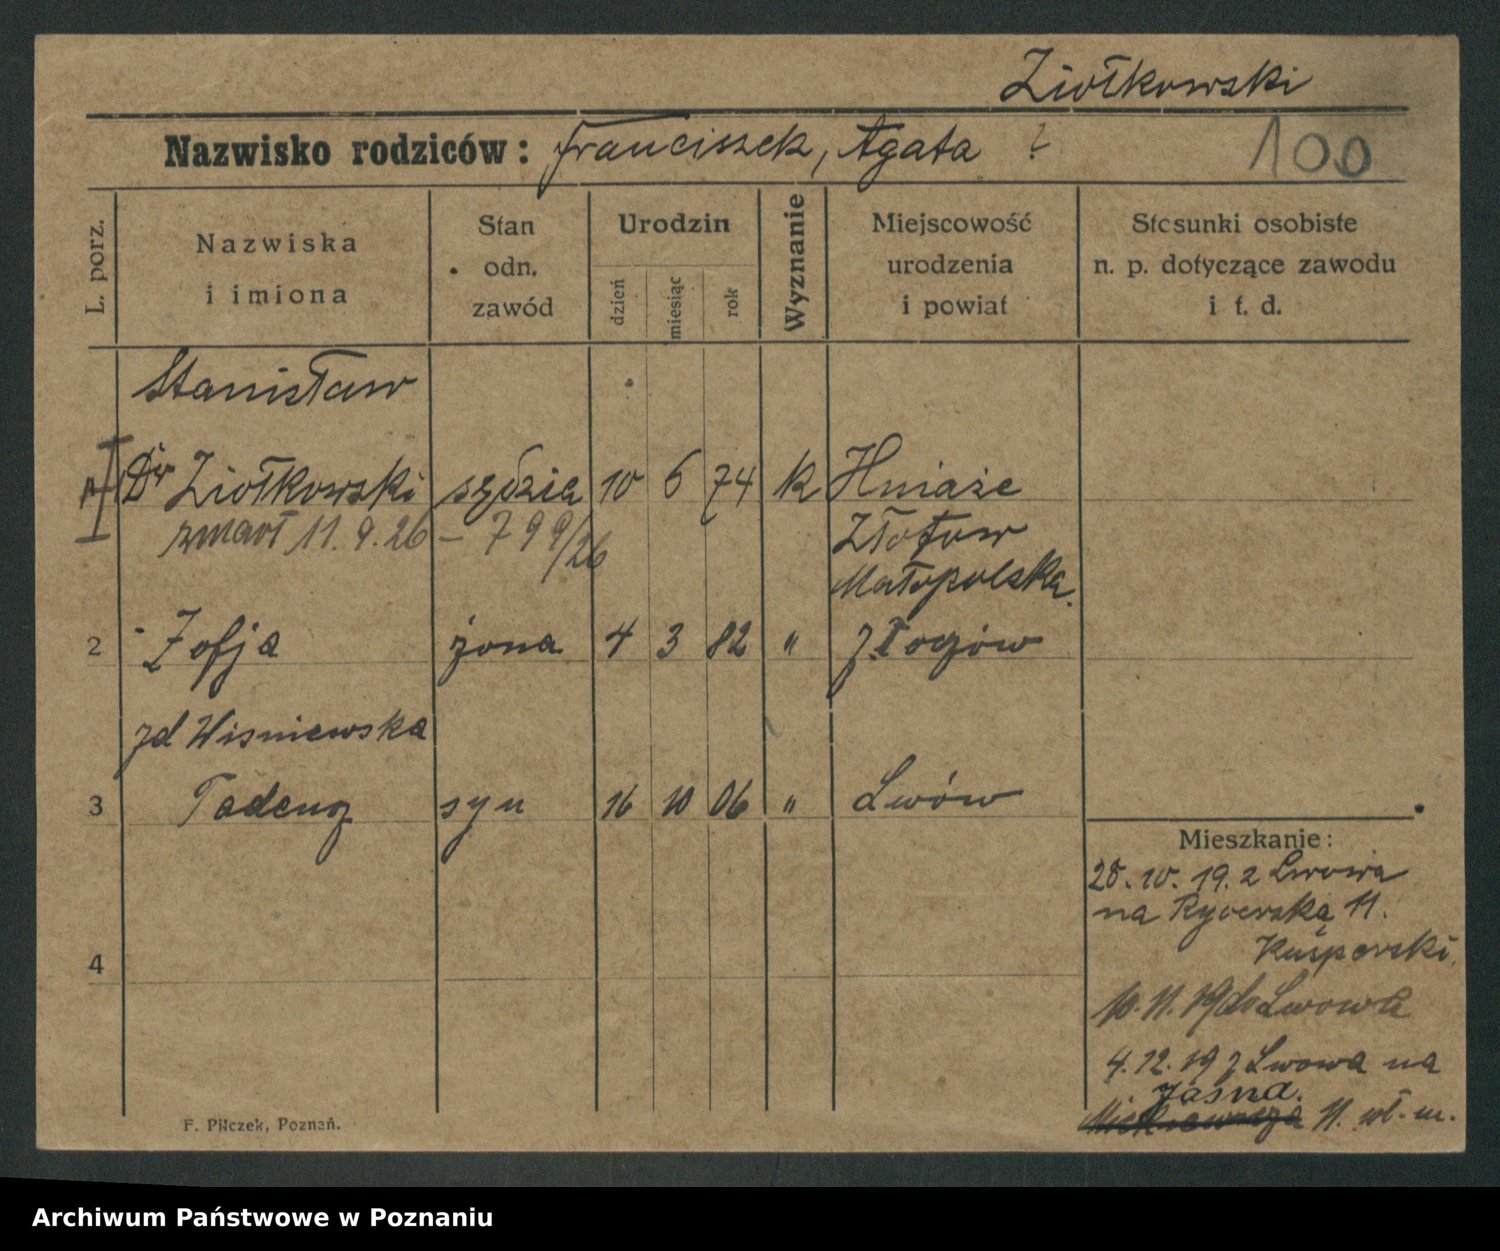 Ziołkowski
Nazwisko rodziców: Franciszek, Agata ?
100
L. porz.
Nazwiska
i imiona
Stan
odn.
zawód
Urodzin
dzień
miesiąc
rok
Wyznanie
Miejscowość
urodzenia
i powiat
Stosunki osobiste
n. p. dotyczące zawodu
i t. d.
Stanisław
Dr Ziołkowski sędzia 10 6 74 k Hniaże
zmarł 11.9.26 – 799/26 Złotow
Małopolska.
2 Zofja żona 4 3 82 " Złoczów
zd Wisniewska
3 Tadeusz syn 16 10 06 " Lwów
4
Mieszkanie:
28.10.19. z Lwowa
na Rycerską 11.
Kasperski.
10.11.19 do Lwowa
4.12.19 z Lwowa na
Jasna.
Mickiewicza 11. wł. m.
F. Pilczek, Poznań.
Archiwum Państwowe w Poznaniu